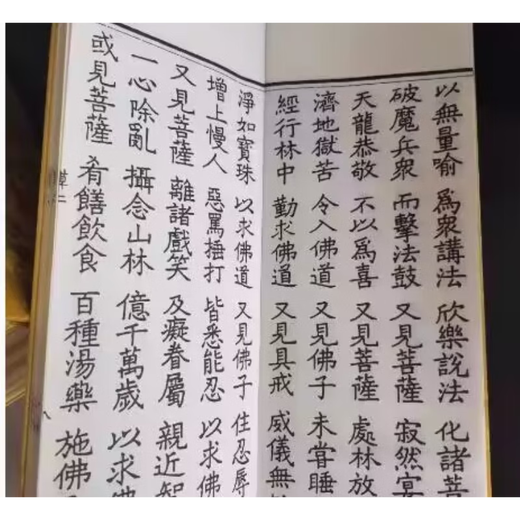 以無量喻 爲衆講法 欣樂說法 化諸菩
破魔兵衆 而擊法鼓 又見菩薩 寂然宴
天龍恭敬 不以爲喜 又見菩薩 處林放
濟地獄苦 令入佛道 又見佛子 未甞睡
經行林中 勤求佛道 又見具戒 威儀無
淨如寶珠 以求佛道 又見佛子 住忍辱
增上慢人 惡罵捶打 皆悉能忍 以求佛
又見菩薩 離諸戲笑 及癡眷屬 親近智
一心除亂 攝念山林 億千萬歲 以求佛
或見菩薩 肴饍飲食 百種湯藥 施佛